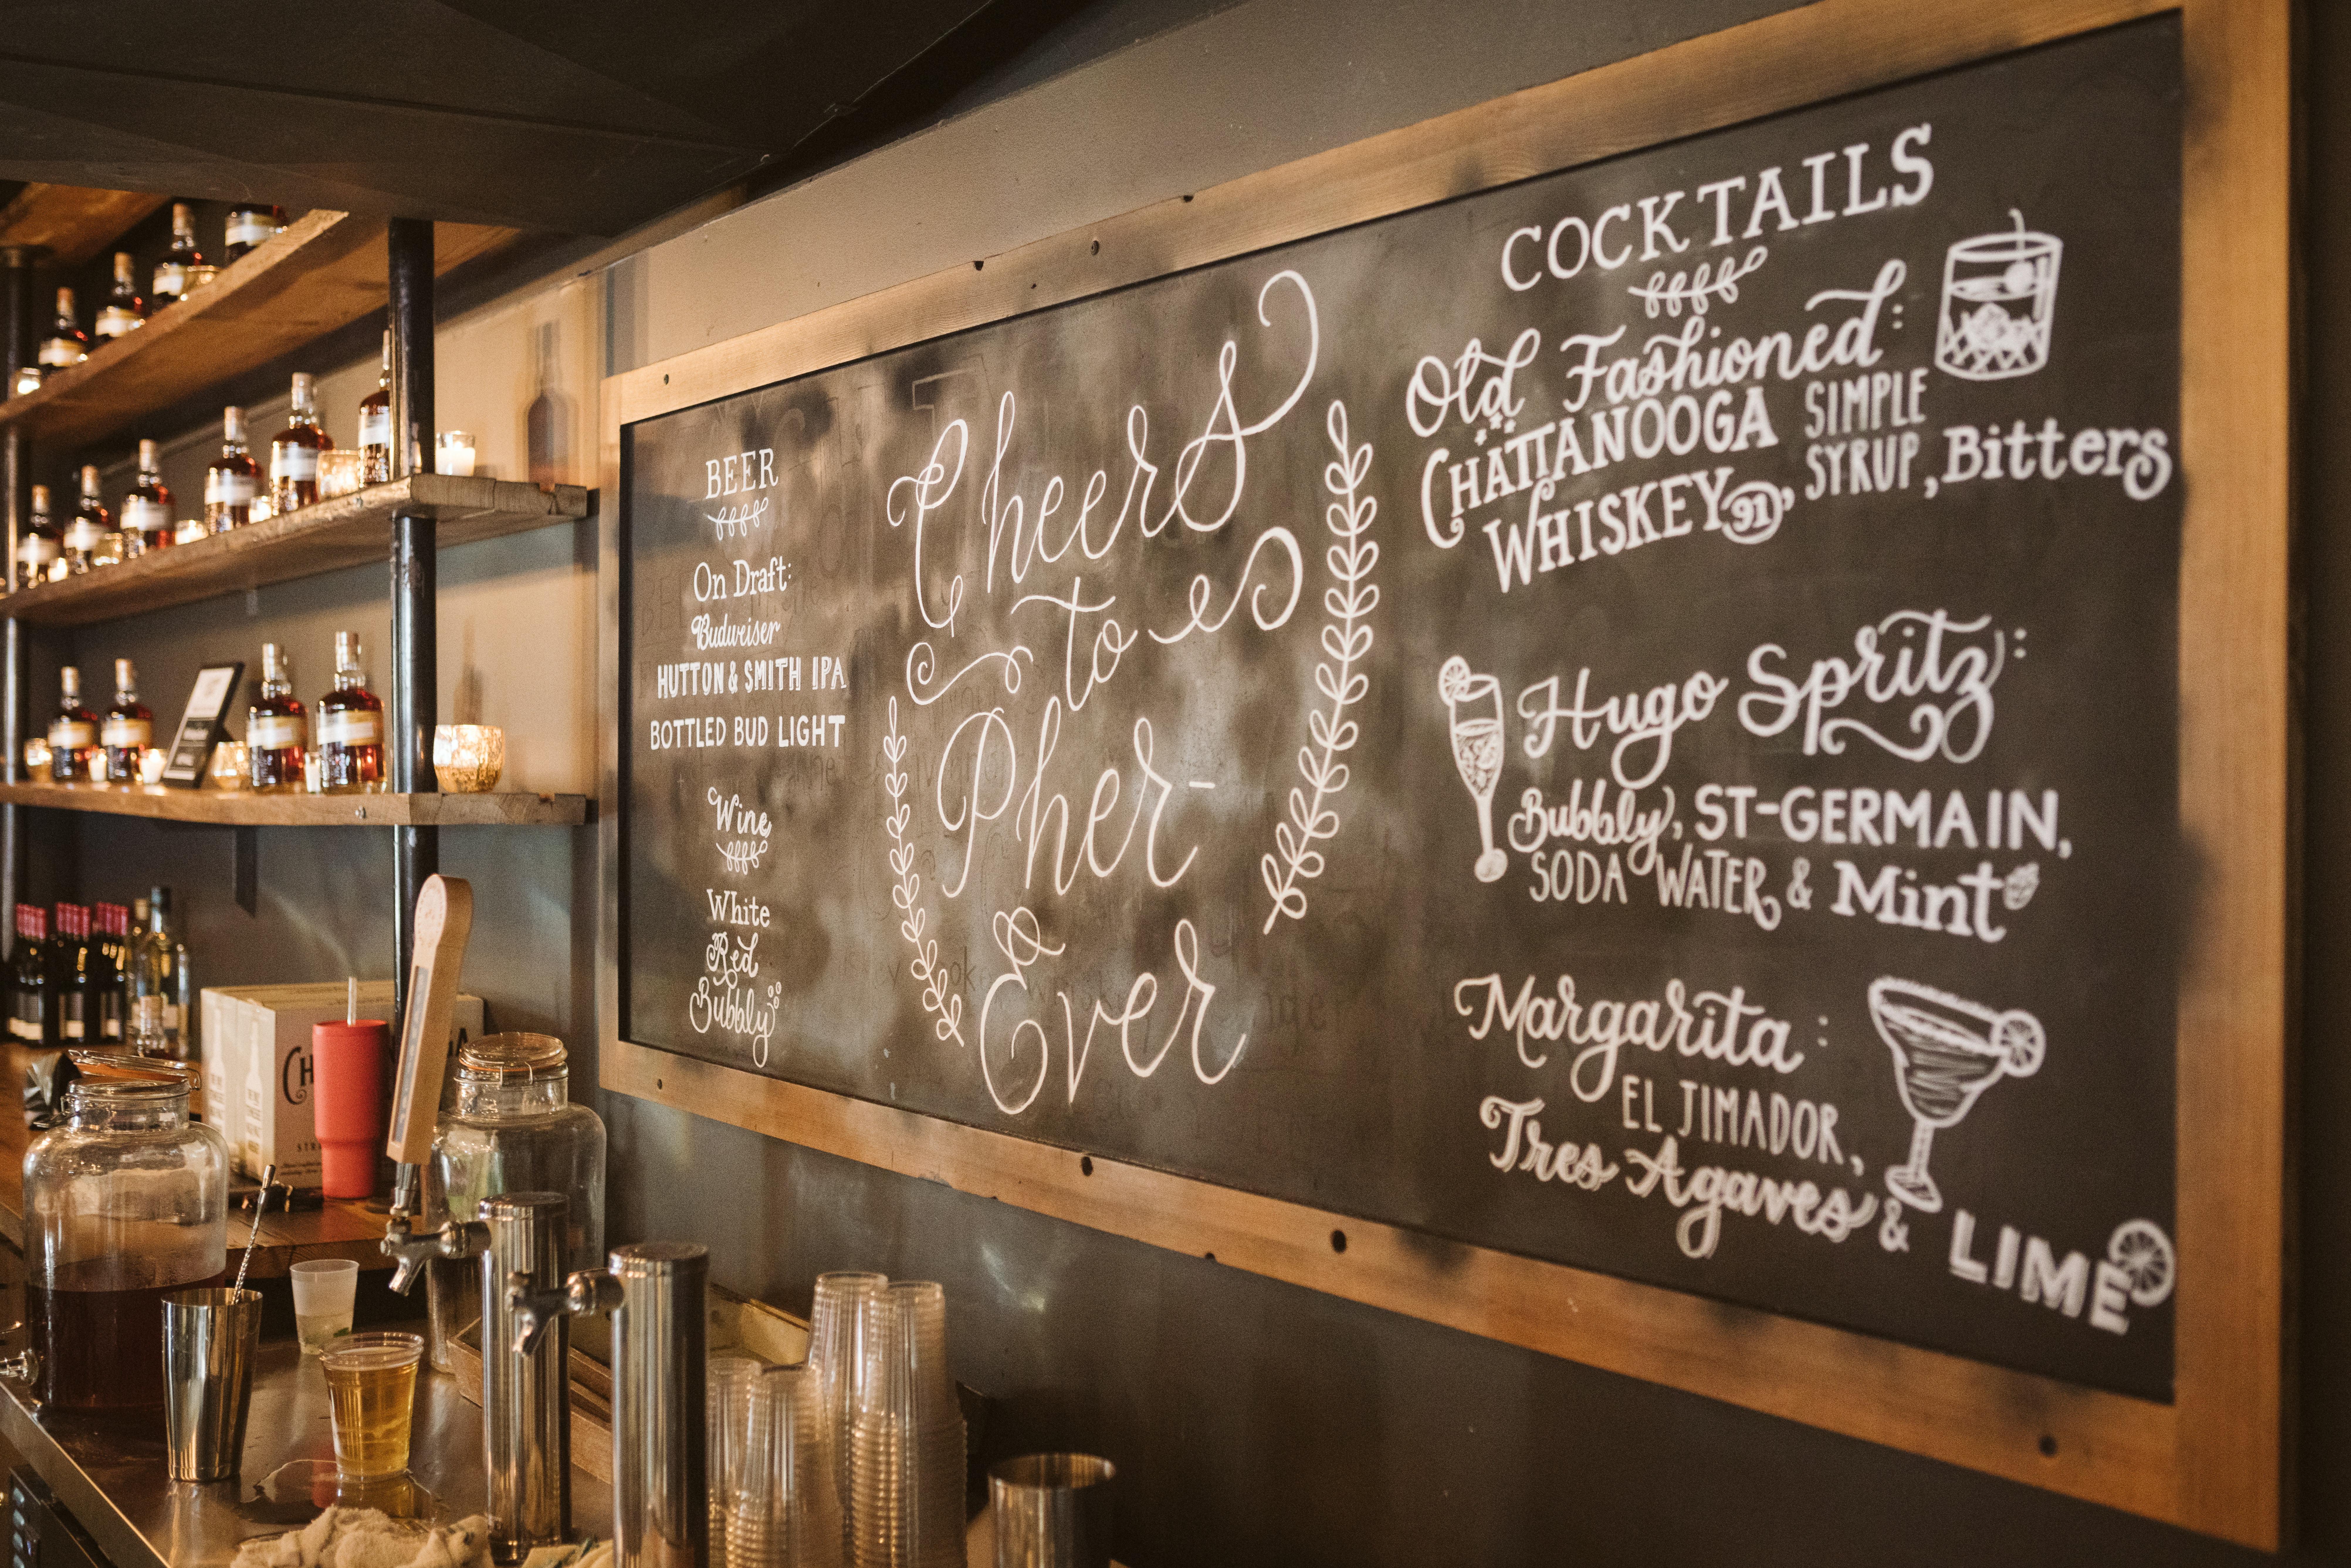 BEER
On Draft:
Budweiser
HUTTON & SMITH IPA
BOTTLED BUD LIGHT
Wine
White
Red
Bubbly
Cheers
to
Pher-
Ever
COCKTAILS
Old Fashioned:
CHATTANOOGA
WHISKEY 91, SIMPLE
SYRUP, Bitters
Hugo Spritz:
Bubbly, ST-GERMAIN,
SODA WATER & Mint
Margarita:
EL JIMADOR,
Tres Agaves & LIME